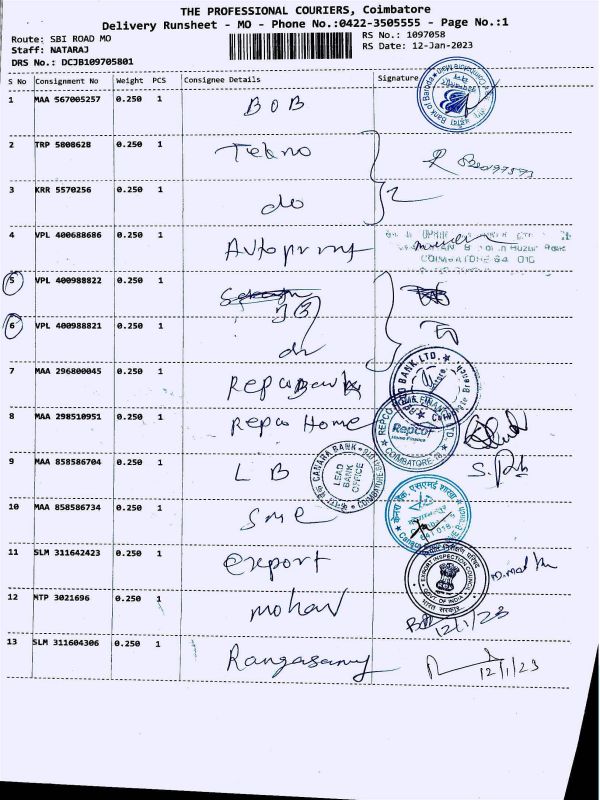 THE PROFESSIONAL COURIERS, Coimbatore
Delivery Runsheet - MO - Phone No.:0422-3505555 - Page No.:1
Route: SBI ROAD MO RS No.: 1097058
Staff: NATARAJ RS Date: 12-Jan-2023
DRS No.: DCJB109705801
S No Consignment No Weight PCS Consignee Details Signature
1 MAA 567005257 0.250 1 BOB
2 TRP 5808628 0.250 1 Tekno
3 KRR 5570256 0.250 1 do
4 VPL 400688686 0.250 1 Autoprint
COIMBATORE
5 VPL 400988822 0.250 1
6 VPL 400988821 0.250 1 do
7 MAA 296800045 0.250 1 Repco Bank
REPCO BANK LTD.
8 MAA 298510951 0.250 1 Repco Home
Repco
Home Finance
COIMBATORE-18
9 MAA 858586704 0.250 1 LB
CANARA BANK
LEAD
BANK
OFFICE
COIMBATORE
10 MAA 858586734 0.250 1 sme
11 SLM 311642423 0.250 1 export
EXPORT INSPECTION COUNCIL
GOVT. OF INDIA
भारत सरकार
12 MTP 3021696 0.250 1 mohan
12/1/23
13 SLM 311604306 0.250 1 Rangasamy 12/1/23